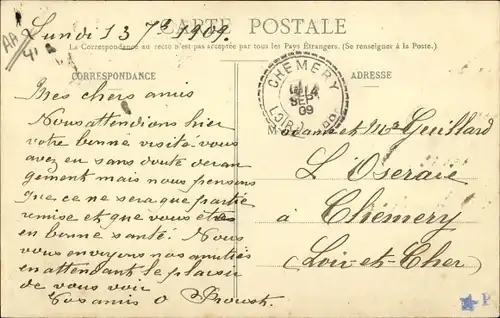 AA
41
Lundi 13 7bre 1909.
CARTE POSTALE
La Correspondance au recto n'est pas acceptée par tous les Pays Étrangers. (Se renseigner à la Poste.)
CORRESPONDANCE
Mes chers amis
Nous attendions hier
votre bonne visite vous
avez eu sans doute deran
gement mais nous pensons
que ce ne sera que partie
remise et que vous êtes
en bonne santé. Nous
vous envoyons nos amitiés
en attendant le plaisir
de vous voir
Vos amis O Proust
CHEMERY
14
SEPT
09
LOIR
ADRESSE
Madame et Mr Geuillard
L'Oseraie
à Chémery
(Loir-et-Cher)